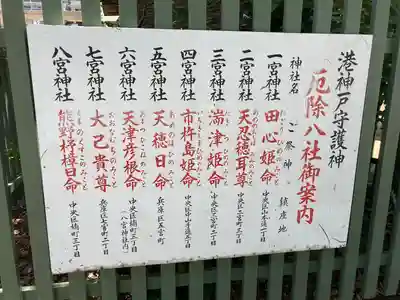 港神戸守護神
厄除八社御案内
神社名 ご祭神 鎮座地
一宮神社 田心姫命 中央区山本通一丁目
二宮神社 天忍穂耳尊 中央区二宮町三丁目
三宮神社 湍津姫命 中央区三宮町二丁目
四宮神社 市杵島姫命 中央区中山手通五丁目
五宮神社 天穂日命 兵庫区五宮町
六宮神社 天津彦根命 中央区楠町三丁目 八宮神社内
七宮神社 大己貴尊 兵庫区七宮町二丁目
八宮神社 熊野杼樟日命 中央区楠町三丁目